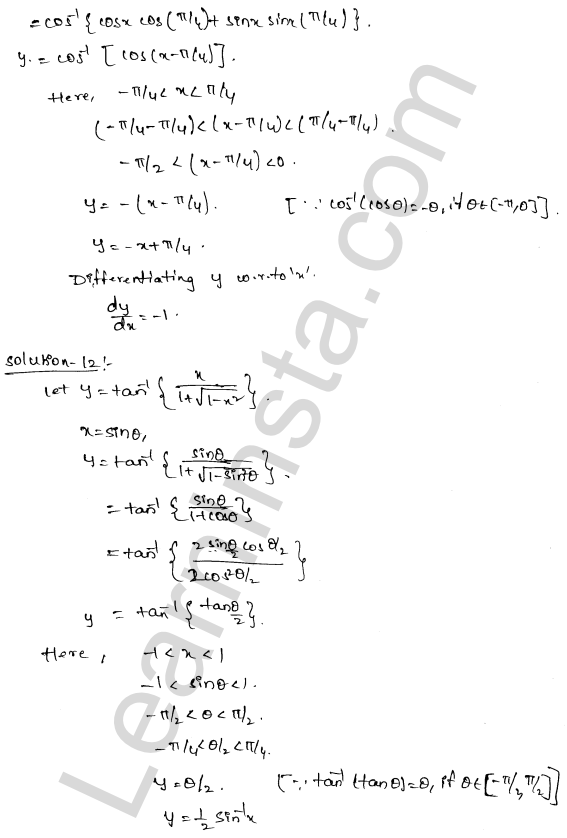 =cos⁻¹{cosx cos(π/4)+ sinx sinx(π/4)}.
y = cos⁻¹ [cos(x-π/4)].
Here, -π/4 < x < π/4
(-π/4-π/4) < (x-π/4) < (π/4-π/4).
-π/2 < (x-π/4) < 0.
y = -(x-π/4). [∵ cos⁻¹(cosθ)=-θ, if θ∈[-π,0]].
y = -x+π/4.
Differentiating y w.r.to 'x'.
dy/dx = -1.
Solution-12:-
Let y = tan⁻¹ {x/(1+√(1-x²))}.
x = sinθ,
y = tan⁻¹ {sinθ/(1+√(1-sin²θ))}.
= tan⁻¹ {sinθ/(1+cosθ)}
= tan⁻¹ {(2 sinθ/2 cosθ/2)/(2cos²θ/2)}
y = tan⁻¹{tanθ/2}.
Here, -1 < x < 1
-1 < sinθ < 1.
-π/2 < θ < π/2.
-π/4 < θ/2 < π/4.
y = θ/2. [∵ tan⁻¹(tanθ)=θ, if θ∈[-π/2, π/2]]
y = 1/2 sin⁻¹x
Learninsta.com